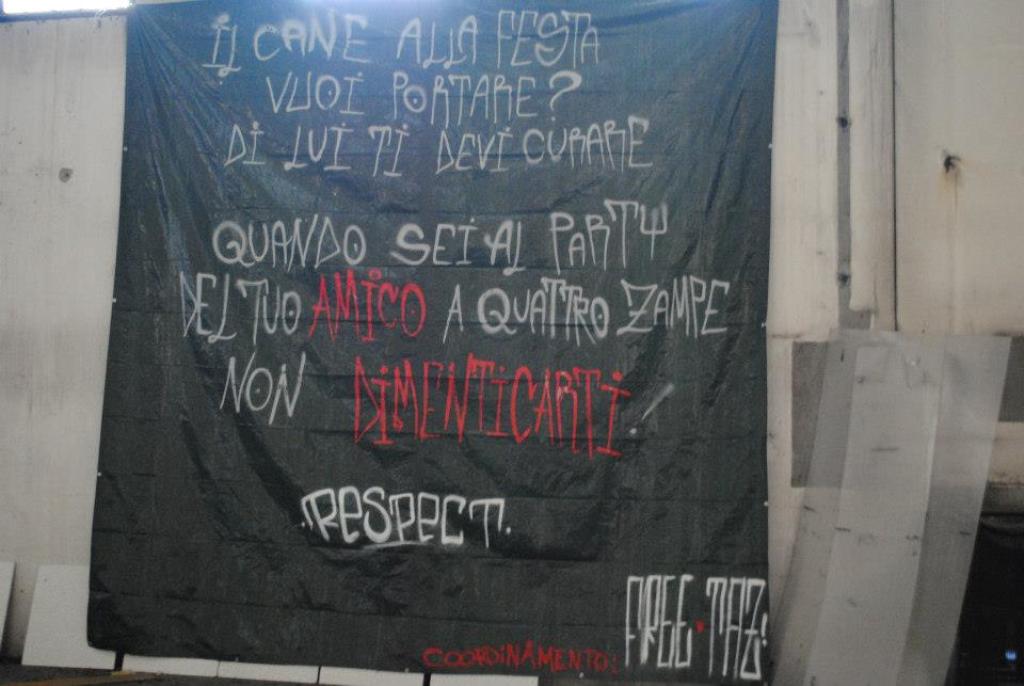 IL CANE ALLA FESTA
VUOI PORTARE?
DI LUI TI DEVI CURARE
QUANDO SEI AL PARTY
DEL TUO AMICO A QUATTRO ZAMPE
NON DIMENTICARTI!
.RESPECT.
FREE·TAZ!
COORDINAMENTO: